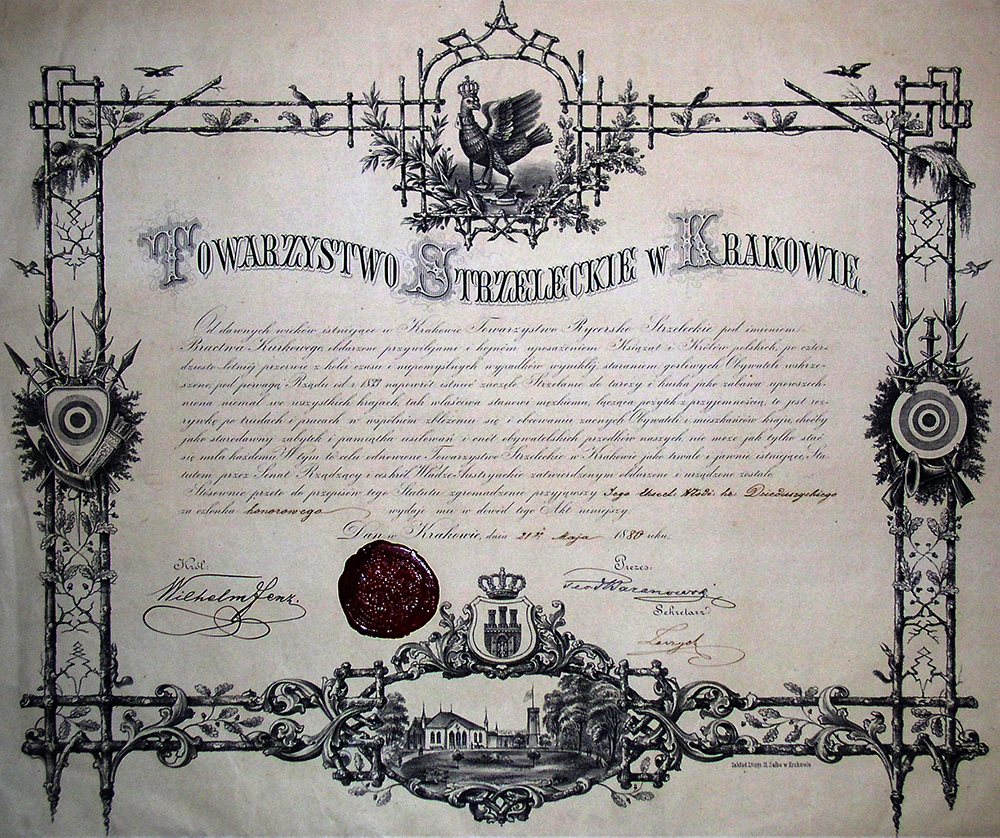 TOWARZYSTWO STRZELECKIE W KRAKOWIE.
Od dawnych wieków istniejące w Krakowie Towarzystwo Rycersko Strzeleckie pod imieniem
Bractwa Kurkowego, obdarzone przywilejami i hojnem uposażeniem Książąt i Królów polskich, po czter-
dziesto-letniej przerwie z kolei czasu i niepomyślnych wypadków wynikłej, staraniem gorliwych Obywateli wskrze-
szone, pod powagą Rządu od r. 1837 napowrót istnieć zaczęło. Strzelanie do tarczy i kurka jako zabawa upowszech-
niona niemal we wszystkich krajach, tak właściwa stanowi męzkiemu, łącząca pożytek z przyjemnością, to jest roz-
rywkę po trudach i pracach w wspólnem zbliżeniu się i obcowaniu zacnych Obywateli i mieszkańców kraju, choćby
jako starodawny zabytek i pamiątka usiłowań i cnót obywatelskich przodków naszych, nie może jak tylko stać
się miłą każdemu. W tym to celu odnowione Towarzystwo Strzeleckie w Krakowie jako trwale i jawnie istniejące, Sta-
tutem przez Senat Rządzący i cesko-król. Władze Austryackie zatwierdzonym obdarzone i urządzone zostało.
Stosownie przeto do przepisów tego Statutu zgromadzenie przyjąwszy Jego Włodz. hr. Dzieduszyckiego
za członka honorowego wydaje mu w dowód tego Akt niniejszy.
Dan w Krakowie, dnia 21go Maja 1880 roku.
Król:
Prezes:
Wilhelm Fenz.
Sekretarz
Zakład Litogr. M. Salba w Krakowie